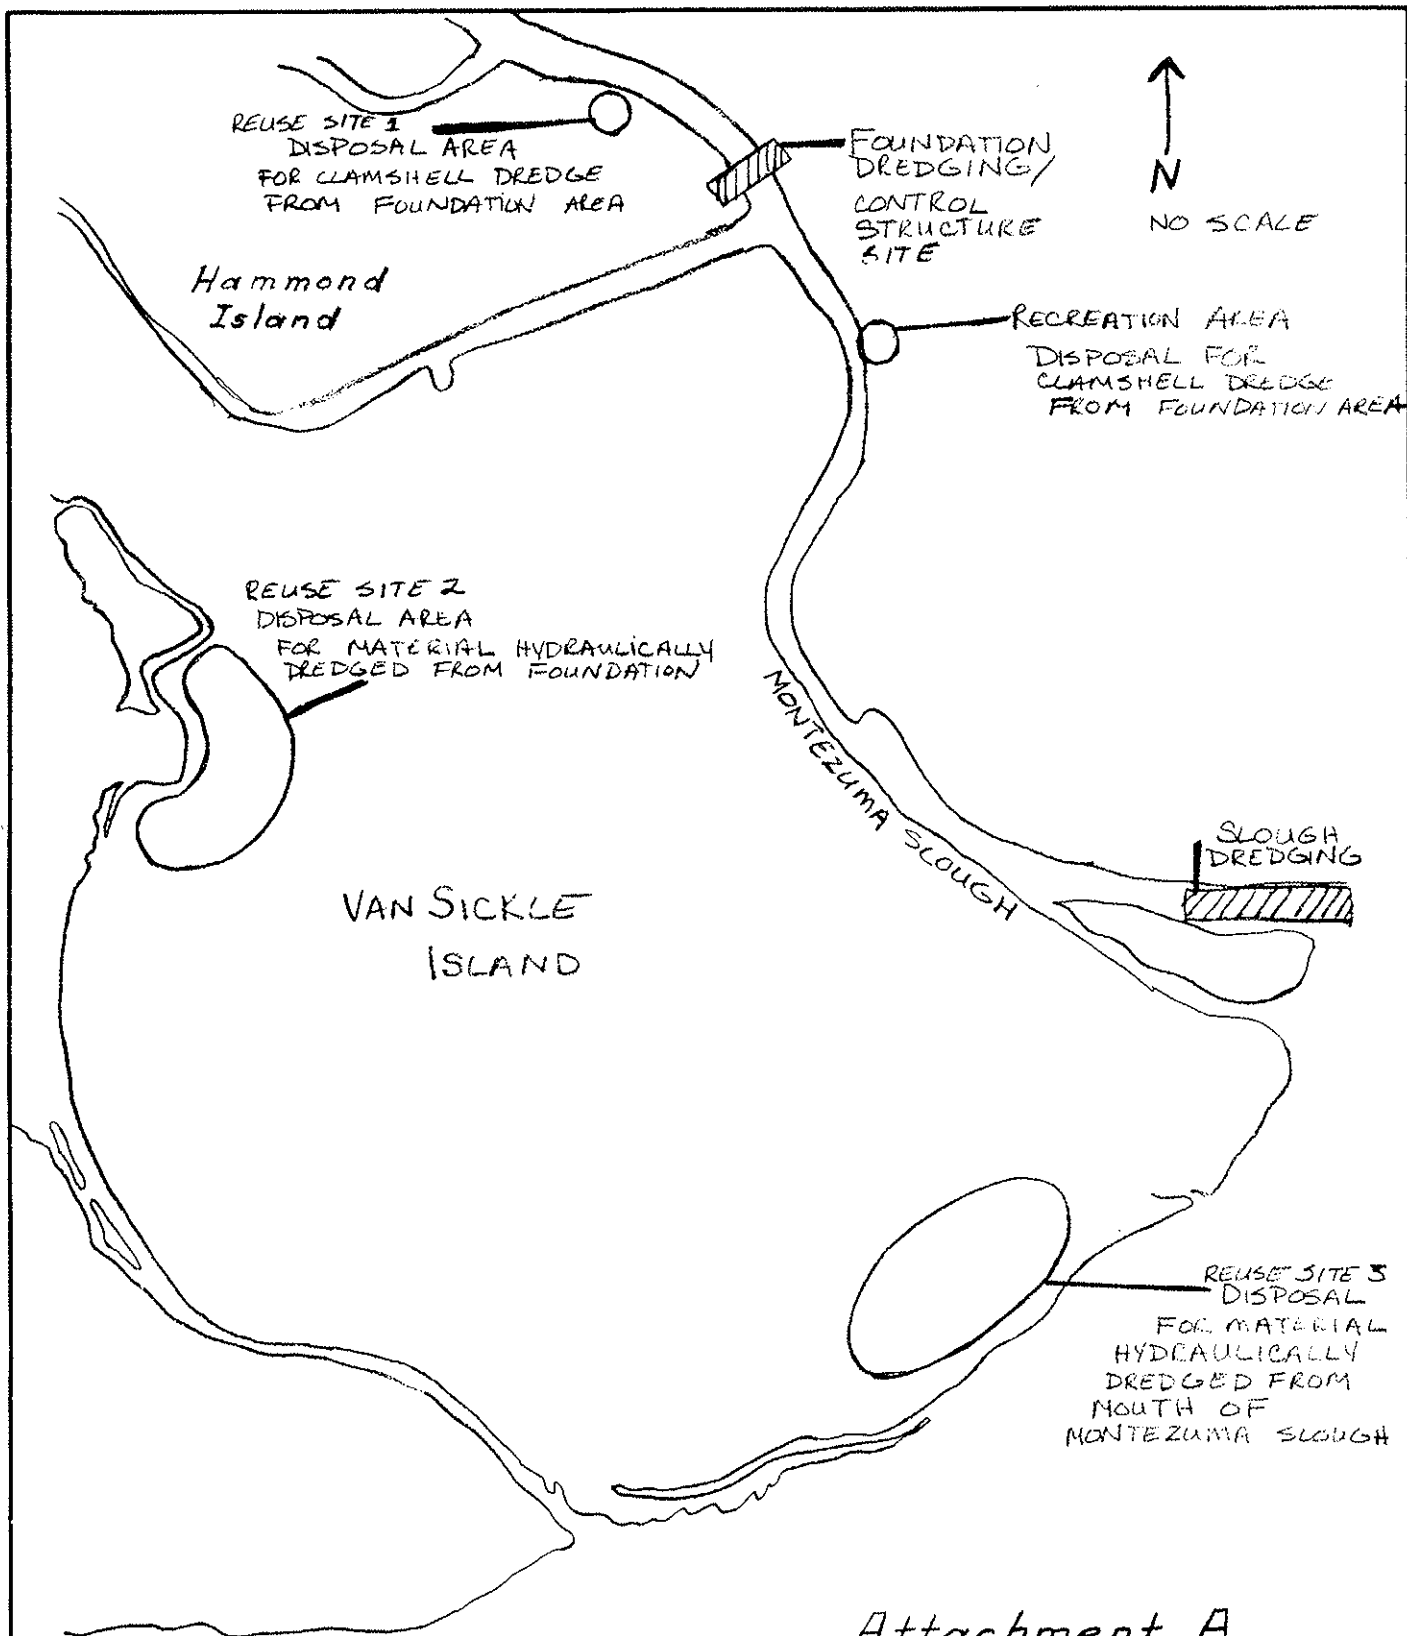 REUSE SITE 1
DISPOSAL AREA
FOR CLAMSHELL DREDGE
FROM FOUNDATION AREA
FOUNDATION
DREDGING/
CONTROL
STRUCTURE
SITE
N
NO SCALE
Hammond
Island
RECREATION AREA
DISPOSAL FOR
CLAMSHELL DREDGE
FROM FOUNDATION AREA
REUSE SITE 2
DISPOSAL AREA
FOR MATERIAL HYDRAULICALLY
DREDGED FROM FOUNDATION
MONTEZUMA SLOUGH
SLOUGH
DREDGING
VAN SICKLE
ISLAND
REUSE SITE 3
DISPOSAL
FOR MATERIAL
HYDRAULICALLY
DREDGED FROM
MOUTH OF
MONTEZUMA SLOUGH
Attachment A